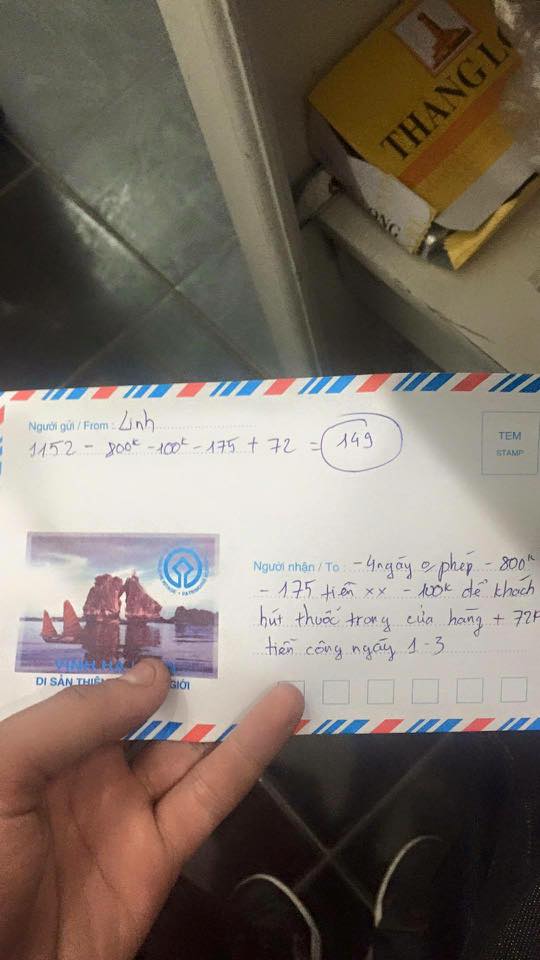 THANG LO
ONG
Người gửi / From : Linh
1152 - 800k - 100k - 175 + 72 = 149
TEM
STAMP
Người nhận / To : - 4 ngày 0 phép - 800k
- 175 tiền xx - 100k để khách
hút thuốc trong cửa hàng + 72k
tiền công ngày 1-3
VỊNH HẠ
DI SẢN THIÊN GIỚI